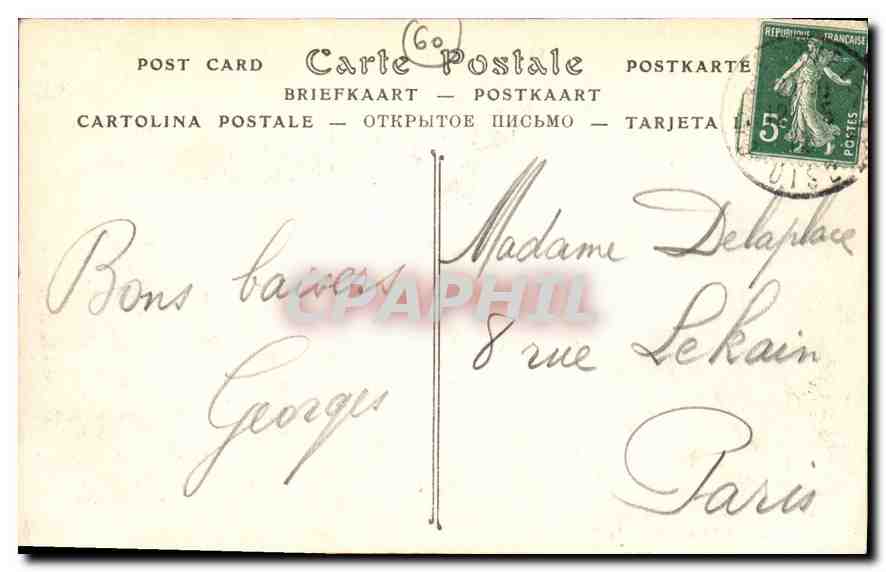 60
POST CARD Carte Postale POSTKARTE
BRIEFKAART — POSTKAART
CARTOLINA POSTALE — ОТКРЫТОЕ ПИСЬМО — TARJETA
REPUBLIQUE FRANÇAISE
5c
POSTES
Bons baisers
Georges
Madame Delaplace
8 rue Lekain
Paris
CPAPHIL